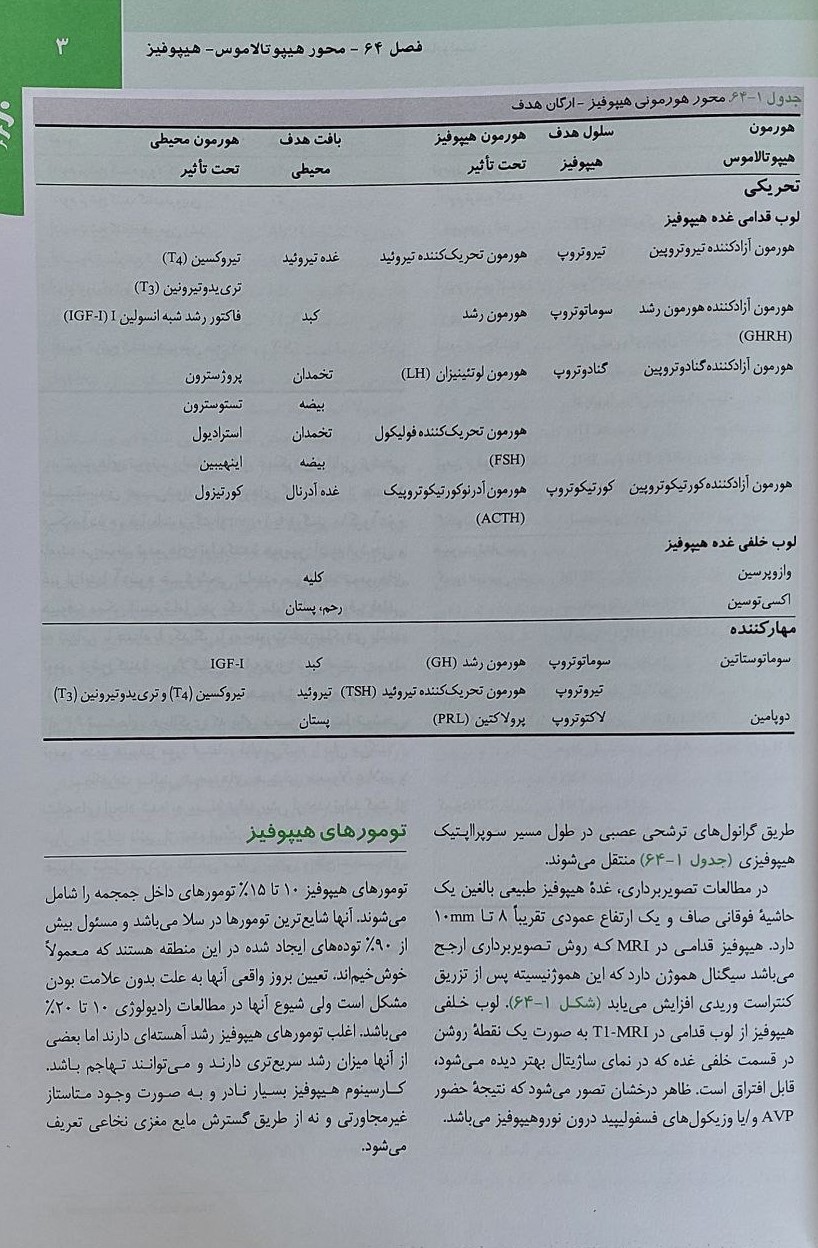 فصل ۶۴ - محور هیپوتالاموس- هیپوفیز
۳
جدول ۱-۶۴. محور هورمونی هیپوفیز - ارگان هدف
هورمون هیپوتالاموس | سلول هدف هیپوفیز | هورمون هیپوفیز تحت تأثیر | بافت هدف محیطی | هورمون محیطی تحت تأثیر
تحریکی
لوب قدامی غده هیپوفیز
هورمون آزادکننده تیروتروپین | تیروتروپ | هورمون تحریک‌کننده تیروئید | غده تیروئید | تیروکسین (T4)
تری‌یدوتیرونین (T3)
هورمون آزادکننده هورمون رشد | سوماتوتروپ | هورمون رشد | کبد | فاکتور رشد شبه انسولین I (IGF-I)
(GHRH)
هورمون آزادکننده گنادوتروپین | گنادوتروپ | هورمون لوتئینیزان (LH) | تخمدان | پروژسترون
بیضه | تستوسترون
هورمون تحریک‌کننده فولیکول | تخمدان | استرادیول
(FSH) | بیضه | اینهیبین
هورمون آزادکننده کورتیکوتروپین | کورتیکوتروپ | هورمون آدرنوکورتیکوتروپیک | غده آدرنال | کورتیزول
(ACTH)
لوب خلفی غده هیپوفیز
وازوپرسین | کلیه
اکسی‌توسین | رحم، پستان
مهارکننده
سوماتوستاتین | سوماتوتروپ | هورمون رشد (GH) | کبد | IGF-I
تیروتروپ | هورمون تحریک‌کننده تیروئید (TSH) | تیروئید | تیروکسین (T4) و تری‌یدوتیرونین (T3)
دوپامین | لاکتوتروپ | پرولاکتین (PRL) | پستان
طریق گرانول‌های ترشحی عصبی در طول مسیر سوپرااپتیک
هیپوفیزی (جدول ۱-۶۴) منتقل می‌شوند.
در مطالعات تصویربرداری، غدهٔ هیپوفیز طبیعی بالغین یک
حاشیهٔ فوقانی صاف و یک ارتفاع عمودی تقریباً ۸ تا ۱۰mm
دارد. هیپوفیز قدامی در MRI که روش تصویربرداری ارجح
می‌باشد سیگنال هموژن دارد که این هموژنیسیته پس از تزریق
کنتراست وریدی افزایش می‌یابد (شکل ۱-۶۴). لوب خلفی
هیپوفیز از لوب قدامی در T1-MRI به صورت یک نقطهٔ روشن
در قسمت خلفی غده که در نمای ساژیتال بهتر دیده می‌شود،
قابل افتراق است. ظاهر درخشان تصور می‌شود که نتیجهٔ حضور
AVP و/یا وزیکول‌های فسفولیپید درون نوروهیپوفیز می‌باشد.
تومورهای هیپوفیز
تومورهای هیپوفیز ۱۰ تا ۱۵٪ تومورهای داخل جمجمه را شامل
می‌شوند. آنها شایع‌ترین تومورها در سلا می‌باشد و مسئول بیش
از ۹۰٪ توده‌های ایجاد شده در این منطقه هستند که معمولاً
خوش‌خیم‌اند. تعیین بروز واقعی آنها به علت بدون علامت بودن
مشکل است ولی شیوع آنها در مطالعات رادیولوژی ۱۰ تا ۲۰٪
می‌باشد. اغلب تومورهای هیپوفیز رشد آهسته‌ای دارند اما بعضی
از آنها میزان رشد سریع‌تری دارند و می‌توانند تهاجم باشد.
کارسینوم هیپوفیز بسیار نادر و به صورت وجود متاستاز
غیرمجاورتی و نه از طریق گسترش مایع مغزی نخاعی تعریف
می‌شود.